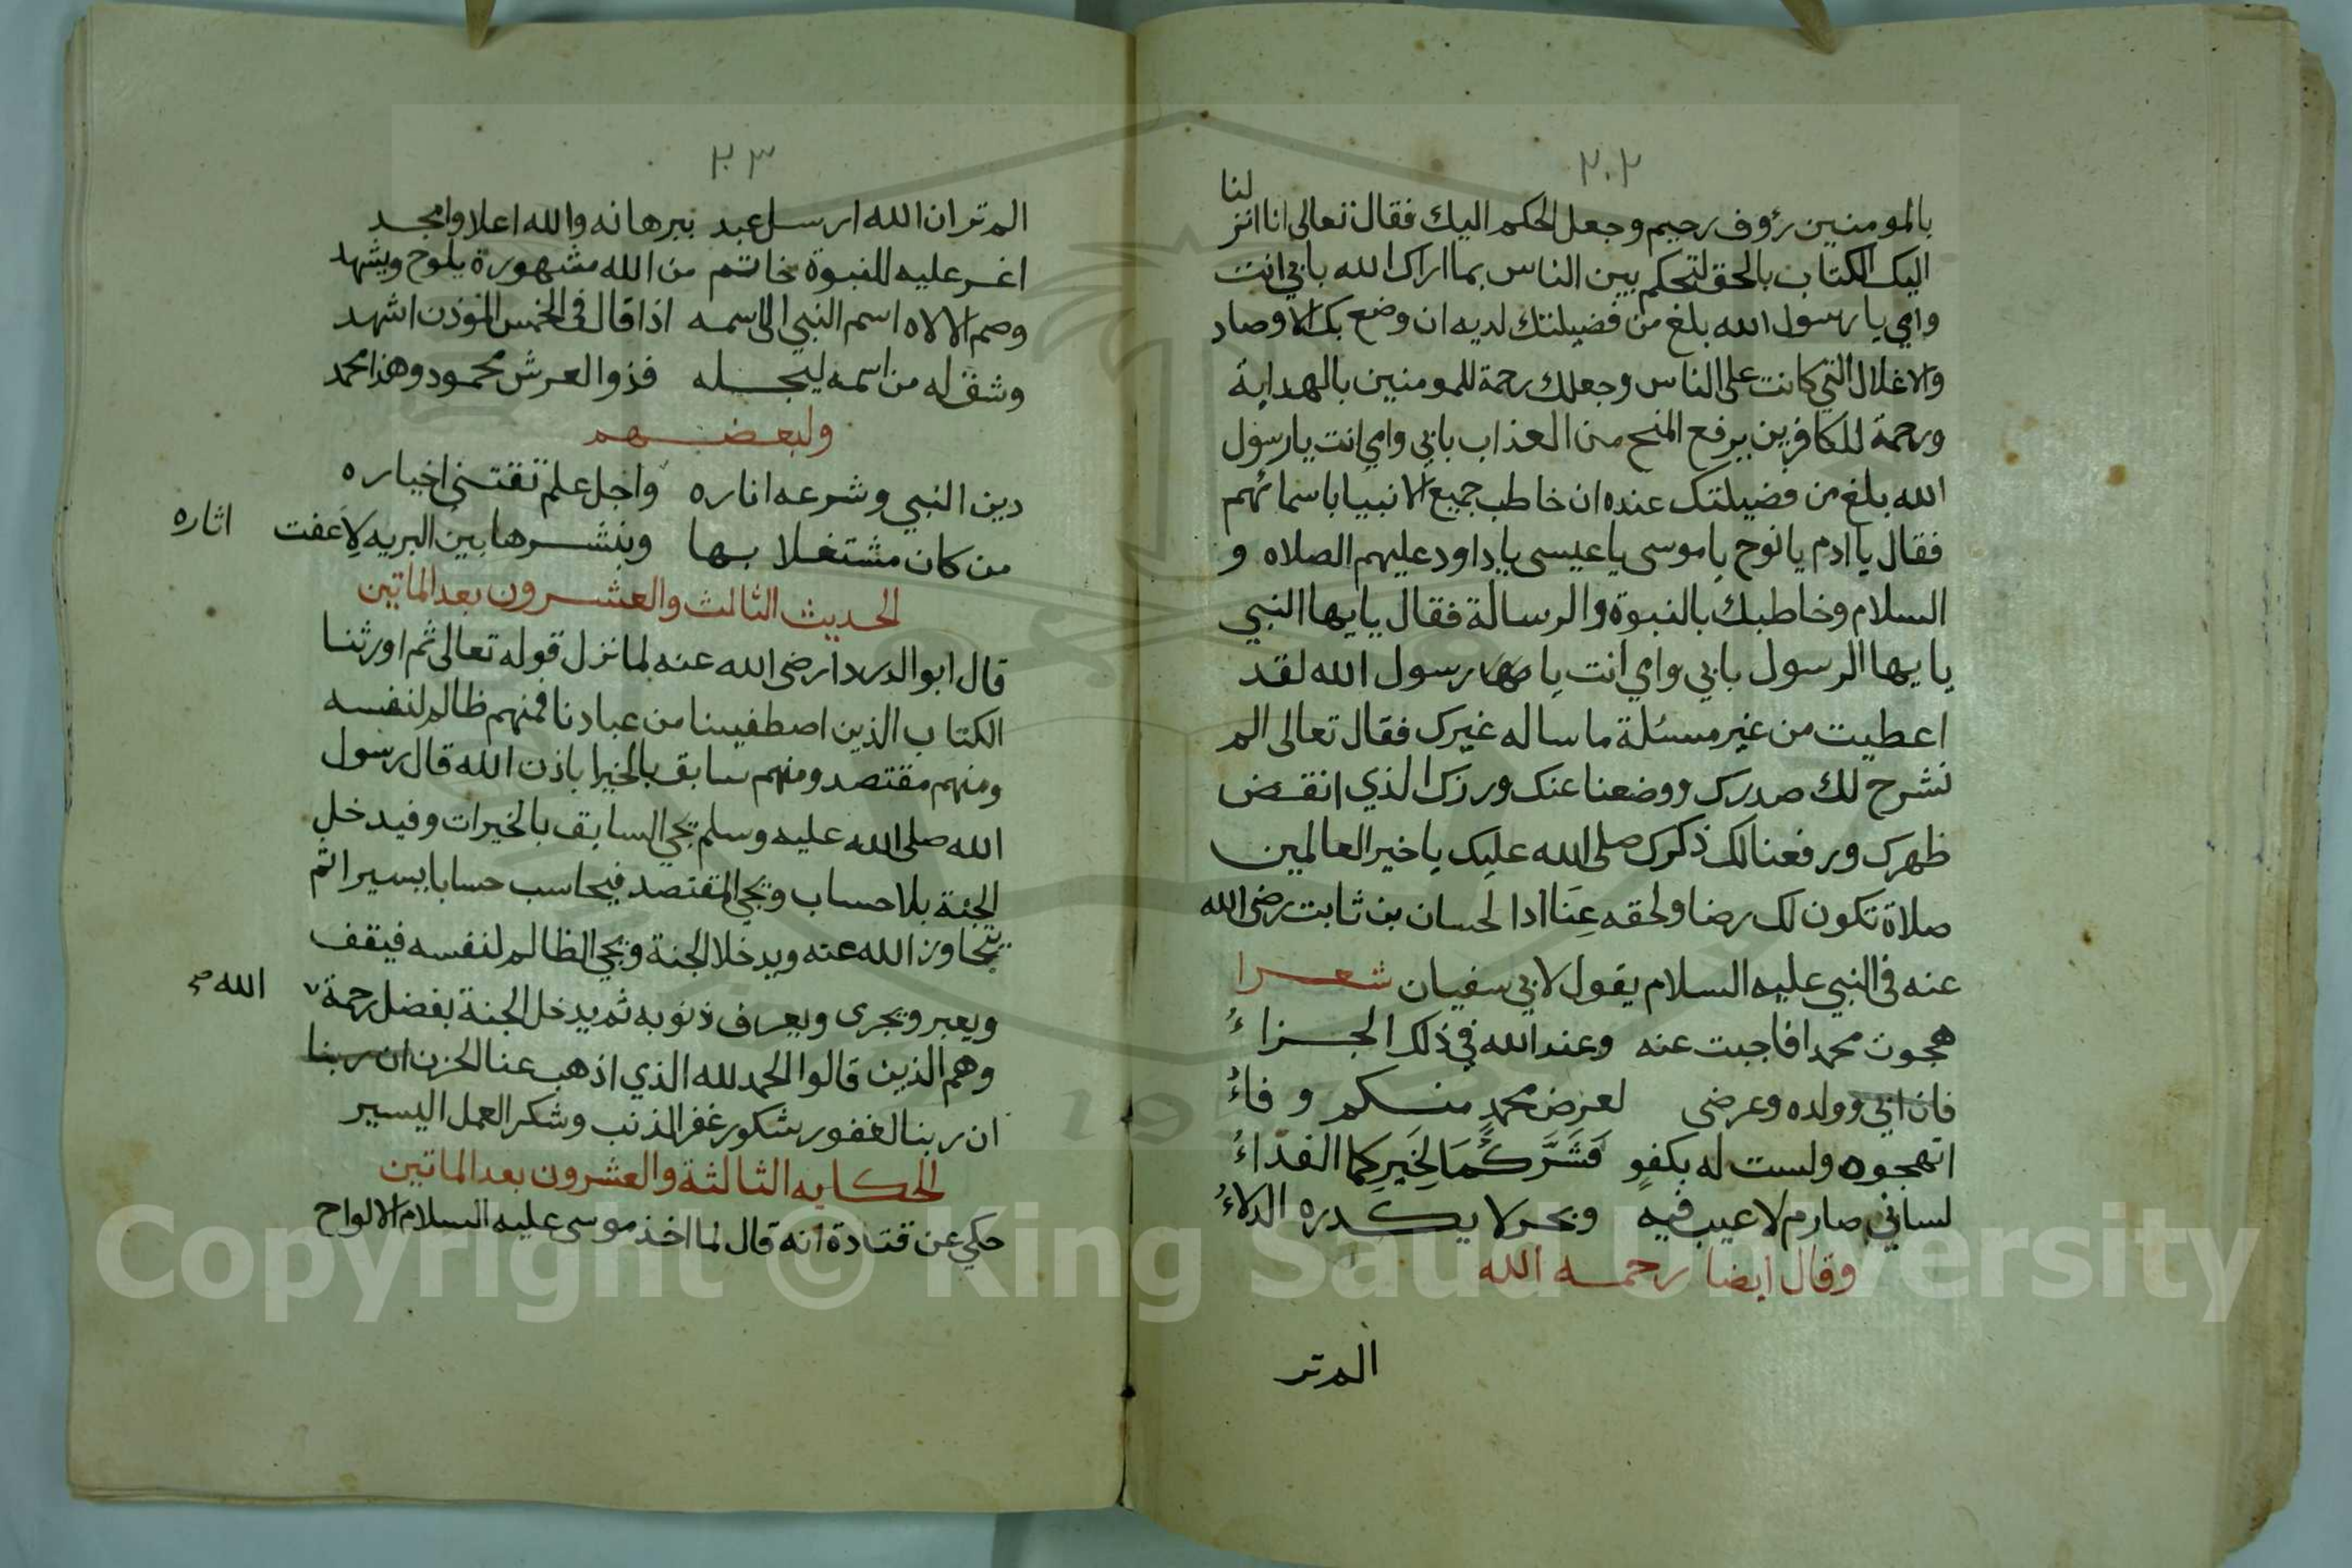 ٢٠٢
بالمومنين رؤف رحيم وجعل الحكم اليك فقال تعالى انا انز لنا
اليك الكتاب بالحق لتحكم بين الناس بما اراك الله بابي انت
وامي يا رسول الله بلغ من فضيلتك لديه ان وضع بك الاوصاد
والاغلال التي كانت على الناس وجعلك رحمة للمومنين بالهداية
ورحمة للكافرين برفع المنح من العذاب بابي وامي انت يا رسول
الله بلغ من فضيلتك عنده ان خاطب جميع الانبيا باسمائهم
فقال يا ادم يا نوح يا موسى يا عيسى يا داود عليهم الصلاه و
السلام وخاطبك بالنبوة والرسالة فقال يايها النبي
يايها الرسول بابي وامي انت يا رسول الله لقد
اعطيت من غير مسئلة ما ساله غيرك فقال تعالى الم
نشرح لك صدرك ووضعنا عنك وزرك الذي انقض
ظهرك ورفعنا لك ذكرك صلى الله عليك يا خير العالمين
صلاة تكون لك رضا ولحقه عنا ادا لحسان بن ثابت رضى الله
عنه فى النبي عليه السلام يقول لابي سفيان شعرا
هجوت محمدا فاجبت عنه وعند الله في ذلك الجزاء
فان ابي وولده وعرضى لعرض محمد منكم وفاء
اتهجوه ولست له بكفو فشركما لخيركما الفداء
لسانى صارم لا عيب فيه وبحر لا يكدره الدلاء
وقال ايضا رحمه الله
الم تر
٢٠٣
الم تر ان الله ارسل عبد ببرهانه والله اعلا وامجد
اغر عليه للنبوة خاتم من الله مشهورة يلوح ويشهد
وضم الالاه اسم النبي الى اسمه اذا قال فى الخمس الموذن اشهد
وشق له من اسمه ليجله فذوا العرش محمود وهذا محمد
ولبعضهم
دين النبي وشرعه اناره واجل علم تقتنى اخباره
من كان مشتغلا بها وبنشرها بين البريه لا عفت اثاره
الحديث الثالث والعشرون بعد الماتين
قال ابو الدردا رضى الله عنه لما نزل قوله تعالى ثم اورثنا
الكتاب الذين اصطفيينا من عبادنا فمنهم ظالم لنفسه
ومنهم مقتصد ومنهم سابق بالخيرا باذن الله قال رسول
الله صلى الله عليه وسلم يجي السابق بالخيرات وفيدخل
الجنة بلا حساب ويجي المقتصد فيحاسب حسابا يسيرا ثم
يتجاوز الله عنه ويدخلا الجنة ويجي الظالم لنفسه فيقف
ويعبر ويجرى ويعرف ذنوبه ثم يدخل الجنة بفضل رحمة الله صح
وهم الذين قالوا الحمد لله الذي اذهب عنا الحزن ان ربنا
ان ربنا لغفور شكور غفر المذنب وشكر العمل اليسير
الحكايه الثالثة والعشرون بعد الماتين
حكي عن قتادة انه قال لما اخذ موسى عليه السلام الالواح
Copyright © King Saud University